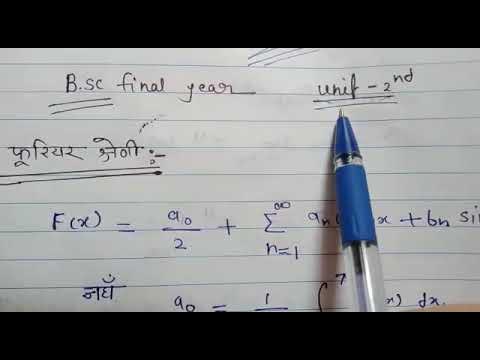 B.sc final year unit - 2nd
फूरियर श्रेणी :-
F(x) = a0/2 + ∑ n=1 ∞ an x + bn si
जहाँ a0 = 1 ∫ (x) dx.